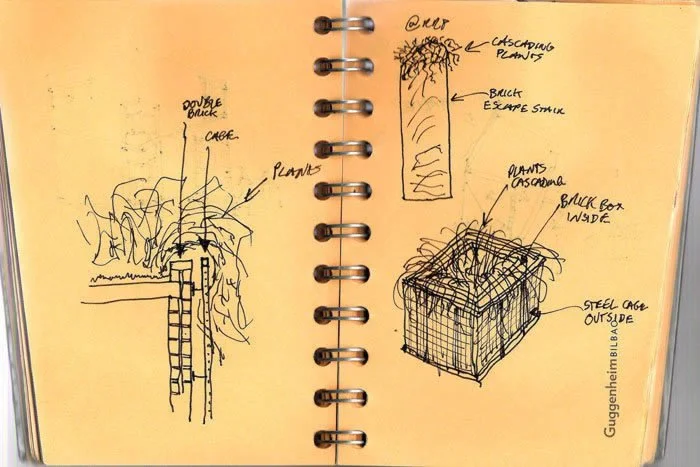 DOUBLE
BRICK
CAGE
PLANTS
CASCADING
PLANTS
BRICK
ESCAPE STAIR
PLANTS
CASCADING
BRICK BOX
INSIDE
STEEL CAGE
OUTSIDE
GuggenheimBILBAO